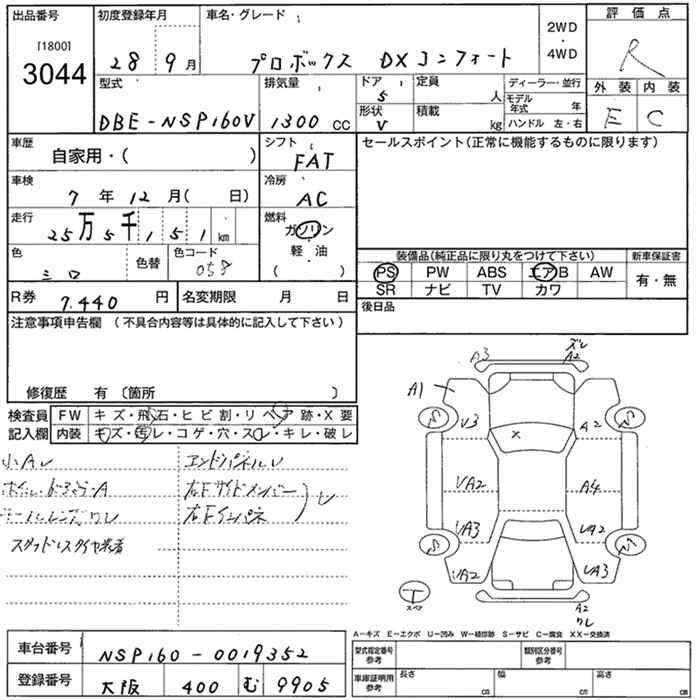 出品番号 初度登録年月 車名・グレード 2WD・4WD 評価点
[1800]
3044 28 9月 プロボックス DXコンフォート R
型式 排気量 ドア 5 定員 人 ディーラー・並行 外装 内装
DBE-NSP160V 1300cc 形状 V 積載 kg モデル年式 年 ハンドル 左・右 E C
車歴 自家用・( ) シフト FAT セールスポイント(正常に機能するものに限ります)
車検 7年12月( 日) 冷房 AC
走行 25万5千151km 燃料 ガソリン・軽油・( )
色 シロ 色替 色コード 058
装備品(純正品に限り丸をつけて下さい) 新車保証書
PS PW ABS エアB AW 有・無
SR ナビ TV カワ
R券 7,440円 名変期限 月 日 後日品
注意事項申告欄(不具合内容等は具体的に記入して下さい)
修復歴 有〔箇所 〕
検査員記入欄 FW キズ・飛石・ヒビ割・リペア跡・X要
内装 キズ・汚レ・コゲ・穴・スレ・キレ・破レ
小AU エンドパネルU
右Fサイドメンバー
右Fインパネ U
スタッドレスタイヤ装着
A3 ズレ A2
A1
V3 × A2
VA2 A4
VA3 VA2
VA2 VA3
T スペア
A2 ワレ
A-キズ E-エクボ U-凹み W-補修跡 S-サビ C-腐食 XX-交換済
車台番号 NSP160-0019352
登録番号 大阪 400 む 9905
型式指定番号 参考 類別区分番号 参考
車庫証明用 参考 長さ cm 幅 cm 高さ cm